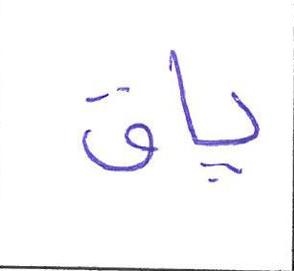 ياق